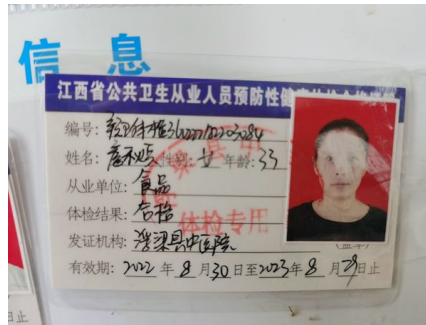 信息
江西省公共卫生从业人员预防性健
编号:
姓名: 性别: 女 年龄: 33
从业单位: 食品
体检结果: 合格
体检专用
发证机构: 县中医院
有效期: 2022 年 8 月 30 日至 2023 年 8 月 29 日止
日止